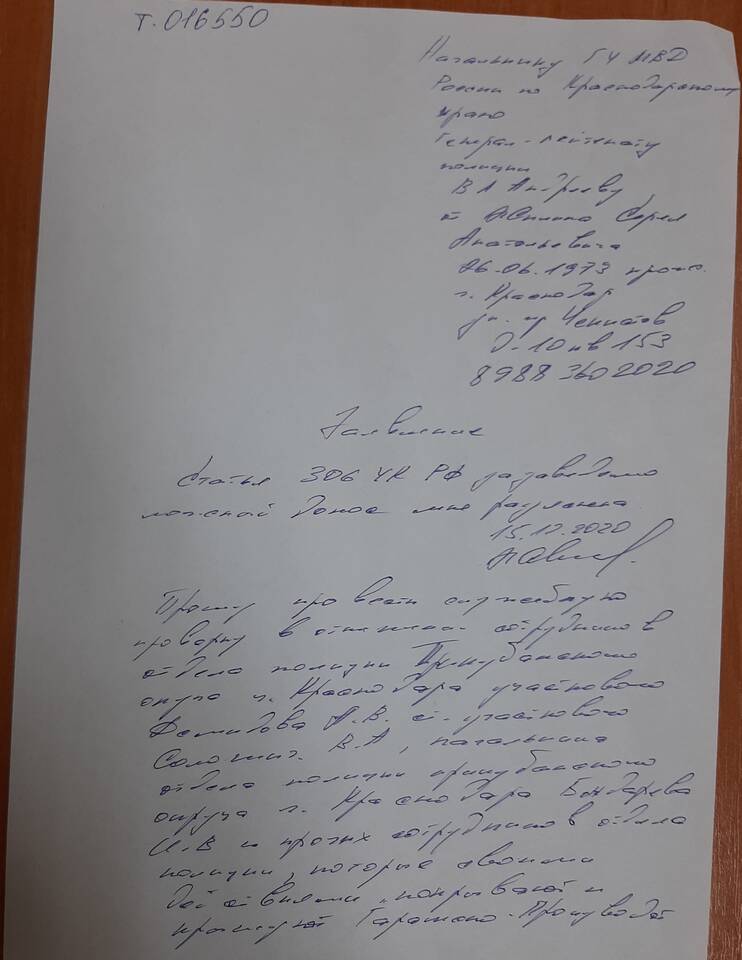 Т. 016550
Начальнику ГУ МВД
России по Краснодарскому
краю
Генерал-лейтенанту
полиции
В А Андрееву
от Сергея
Анатольевича
26.06.1973 прож.
г. Краснодар
ул. пр Чекистов
д-10 кв 153
8988 3602020
Заявление
Статья 306 УК РФ за заведомо
ложный донос мне разъяснена
15.12.2020
Прошу провести служебную
проверку в отношении сотрудников
отдела полиции Прикубанского
округа г. Краснодара участкового
Демидова А.В. ст. участкового
В.А, начальника
отдела полиции прикубанского
округа г. Краснодара Бондарева
И.В и прочих сотрудников отдела
полиции, которые своими
действиями "покрывают и
крышуют Гаражно-Производст